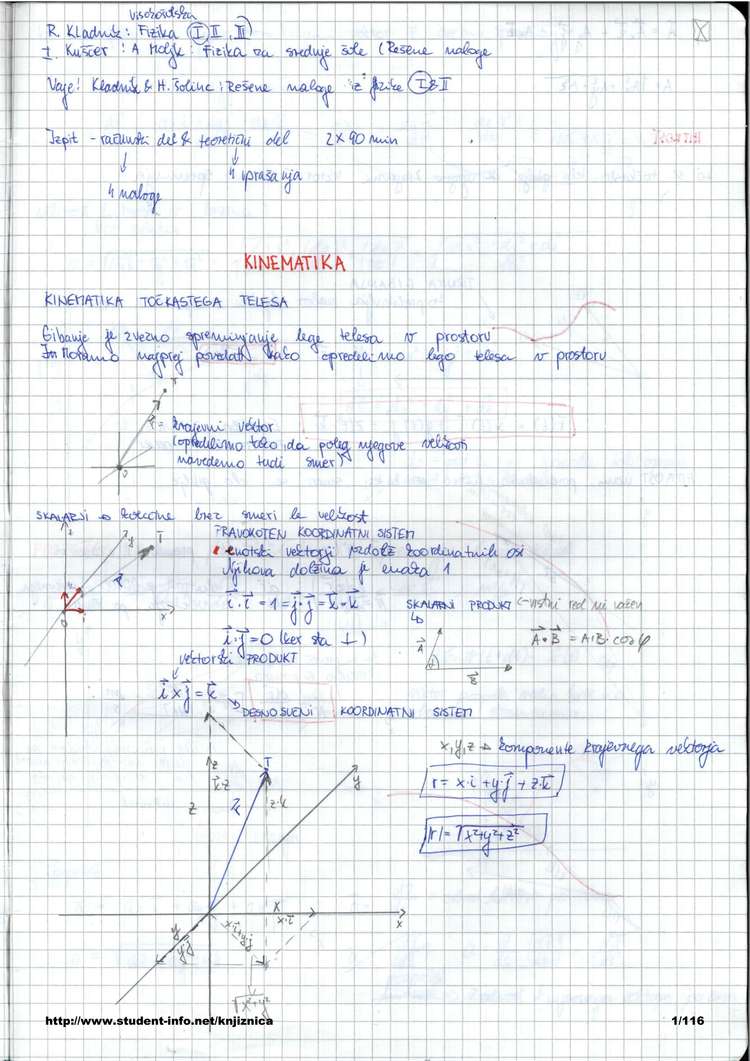 visokošolska
R. Kladnik: Fizika (I II, III)
I. Kuščer : A Moljk : Fizika za srednje šole (Rešene naloge
Vaje: Kladnik & H. Šolinc : Rešene naloge iz fizike I & II
Izpit - računski del & teoretični del 2×90 min
4 vprašanja
4 naloge
KINEMATIKA
KINEMATIKA TOČKASTEGA TELESA
Gibanje je zvezno spreminjanje lege telesa v prostoru
Moramo najprej povedati kako opredelimo lego telesa v prostoru
r = krajevni vektor
(opredelimo tako, da poleg njegove velikosti
navedemo tudi smer)
SKALARJI → količine brez smeri le velikost
PRAVOKOTEN KOORDINATNI SISTEM
enotski vektorji vzdolž koordinatnih osi
Njihova dolžina je enaka 1
i⃗·i⃗ = 1 = j⃗·j⃗ = k⃗·k⃗
SKALARNI PRODUKT (-vrstni red ni važen
i⃗·j⃗ = 0 (ker sta ⊥)
A⃗•B⃗ = A·B·cos φ
vektorski PRODUKT
i⃗ × j⃗ = k⃗
DESNOSUČNI KOORDINATNI SISTEM
x, y, z → komponente krajevnega vektorja
r = x·i + y·j⃗ + z·k⃗
|r| = √x²+y²+z²
z
T
k⃗·z
y
z
r⃗
z·k
x
x·i⃗
x
y
y·j⃗
x·i⃗+y·j⃗
√x²+y²
http://www.student-info.net/knjiznica
1/116